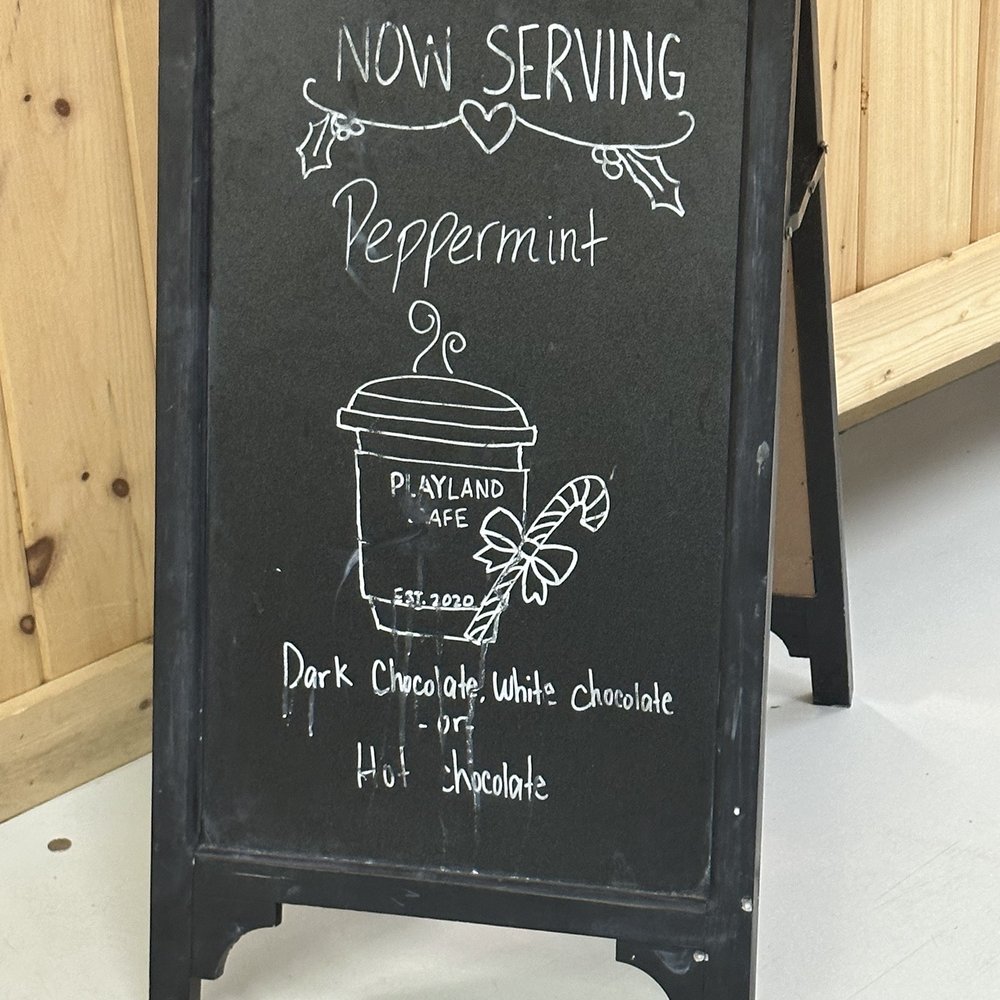 NOW SERVING
Peppermint
PLAYLAND
CAFE
EST. 2020
Dark Chocolate, White chocolate
- or -
Hot chocolate